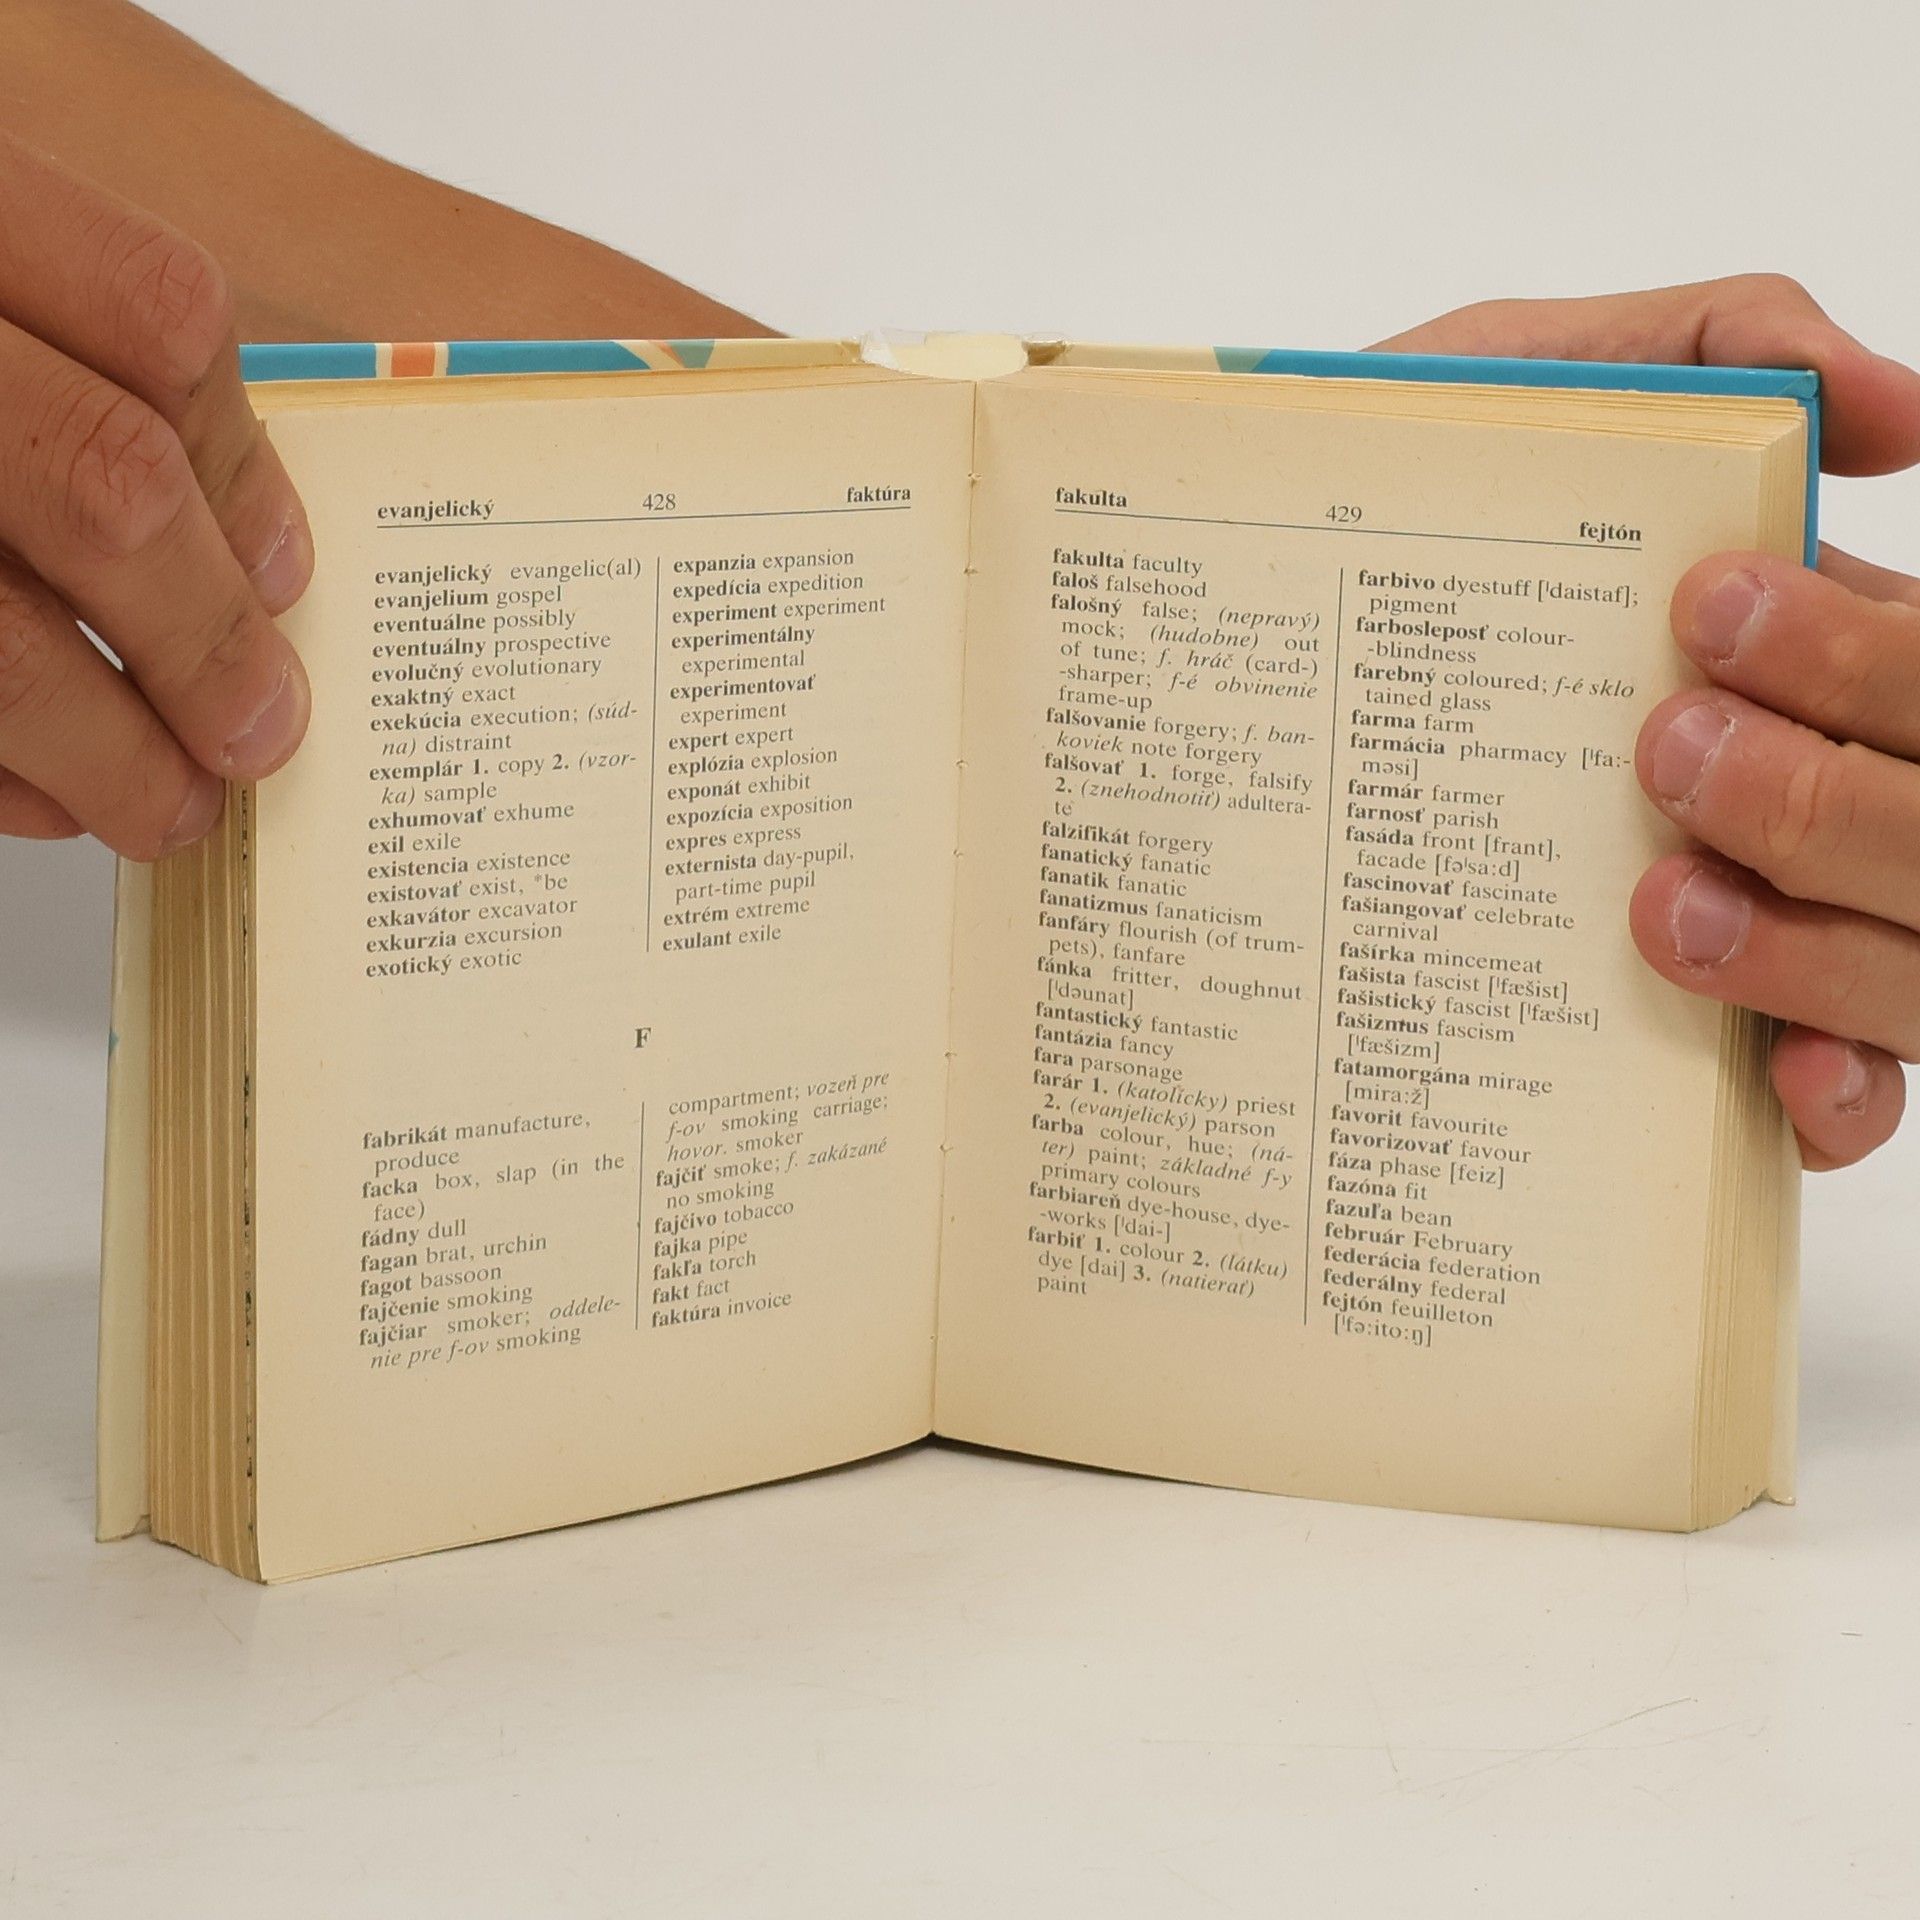 evanjelický 428 faktúra
evanjelický evangelic(al)
evanjelium gospel
eventuálne possibly
eventuálny prospective
evolučný evolutionary
exaktný exact
exekúcia execution; (súd-
na) distraint
exemplár 1. copy 2. (vzor-
ka) sample
exhumovať exhume
exil exile
existencia existence
existovať exist, *be
exkavátor excavator
exkurzia excursion
exotický exotic
expanzia expansion
expedícia expedition
experiment experiment
experimentálny
experimental
experimentovať
experiment
expert expert
explózia explosion
exponát exhibit
expozícia exposition
expres express
externista day-pupil,
part-time pupil
extrém extreme
exulant exile
F
fabrikát manufacture,
produce
facka box, slap (in the
face)
fádny dull
fagan brat, urchin
fagot bassoon
fajčenie smoking
fajčiar smoker; oddele-
nie pre f-ov smoking
compartment; vozeň pre
f-ov smoking carriage;
hovor. smoker
fajčiť smoke; f. zakázané
no smoking
fajčivo tobacco
fajka pipe
fakľa torch
fakt fact
faktúra invoice
fakulta 429 fejtón
fakulta faculty
faloš falsehood
falošný false; (nepravý)
mock; (hudobne) out
of tune; f. hráč (card-)
-sharper; f-é obvinenie
frame-up
falšovanie forgery; f. ban-
koviek note forgery
falšovať 1. forge, falsify
2. (znehodnotiť) adultera-
te
falzifikát forgery
fanatický fanatic
fanatik fanatic
fanatizmus fanaticism
fanfáry flourish (of trum-
pets), fanfare
fánka fritter, doughnut
['dəunat]
fantastický fantastic
fantázia fancy
fara parsonage
farár 1. (katolícky) priest
2. (evanjelický) parson
farba colour, hue; (ná-
ter) paint; základné f-y
primary colours
farbiareň dye-house, dye-
-works ['dai-]
farbiť 1. colour 2. (látku)
dye [dai] 3. (natierať)
paint
farbivo dyestuff ['daistaf];
pigment
farbosleposť colour-
-blindness
farebný coloured; f-é sklo
tained glass
farma farm
farmácia pharmacy ['fa:-
məsi]
farmár farmer
farnosť parish
fasáda front [frant],
facade [fə'sa:d]
fascinovať fascinate
fašiangovať celebrate
carnival
fašírka mincemeat
fašista fascist ['fæšist]
fašistický fascist ['fæšist]
fašizmus fascism
['fæšizm]
fatamorgána mirage
[mira:ž]
favorit favourite
favorizovať favour
fáza phase [feiz]
fazóna fit
fazuľa bean
február February
federácia federation
federálny federal
fejtón feuilleton
['fə:ito:ŋ]